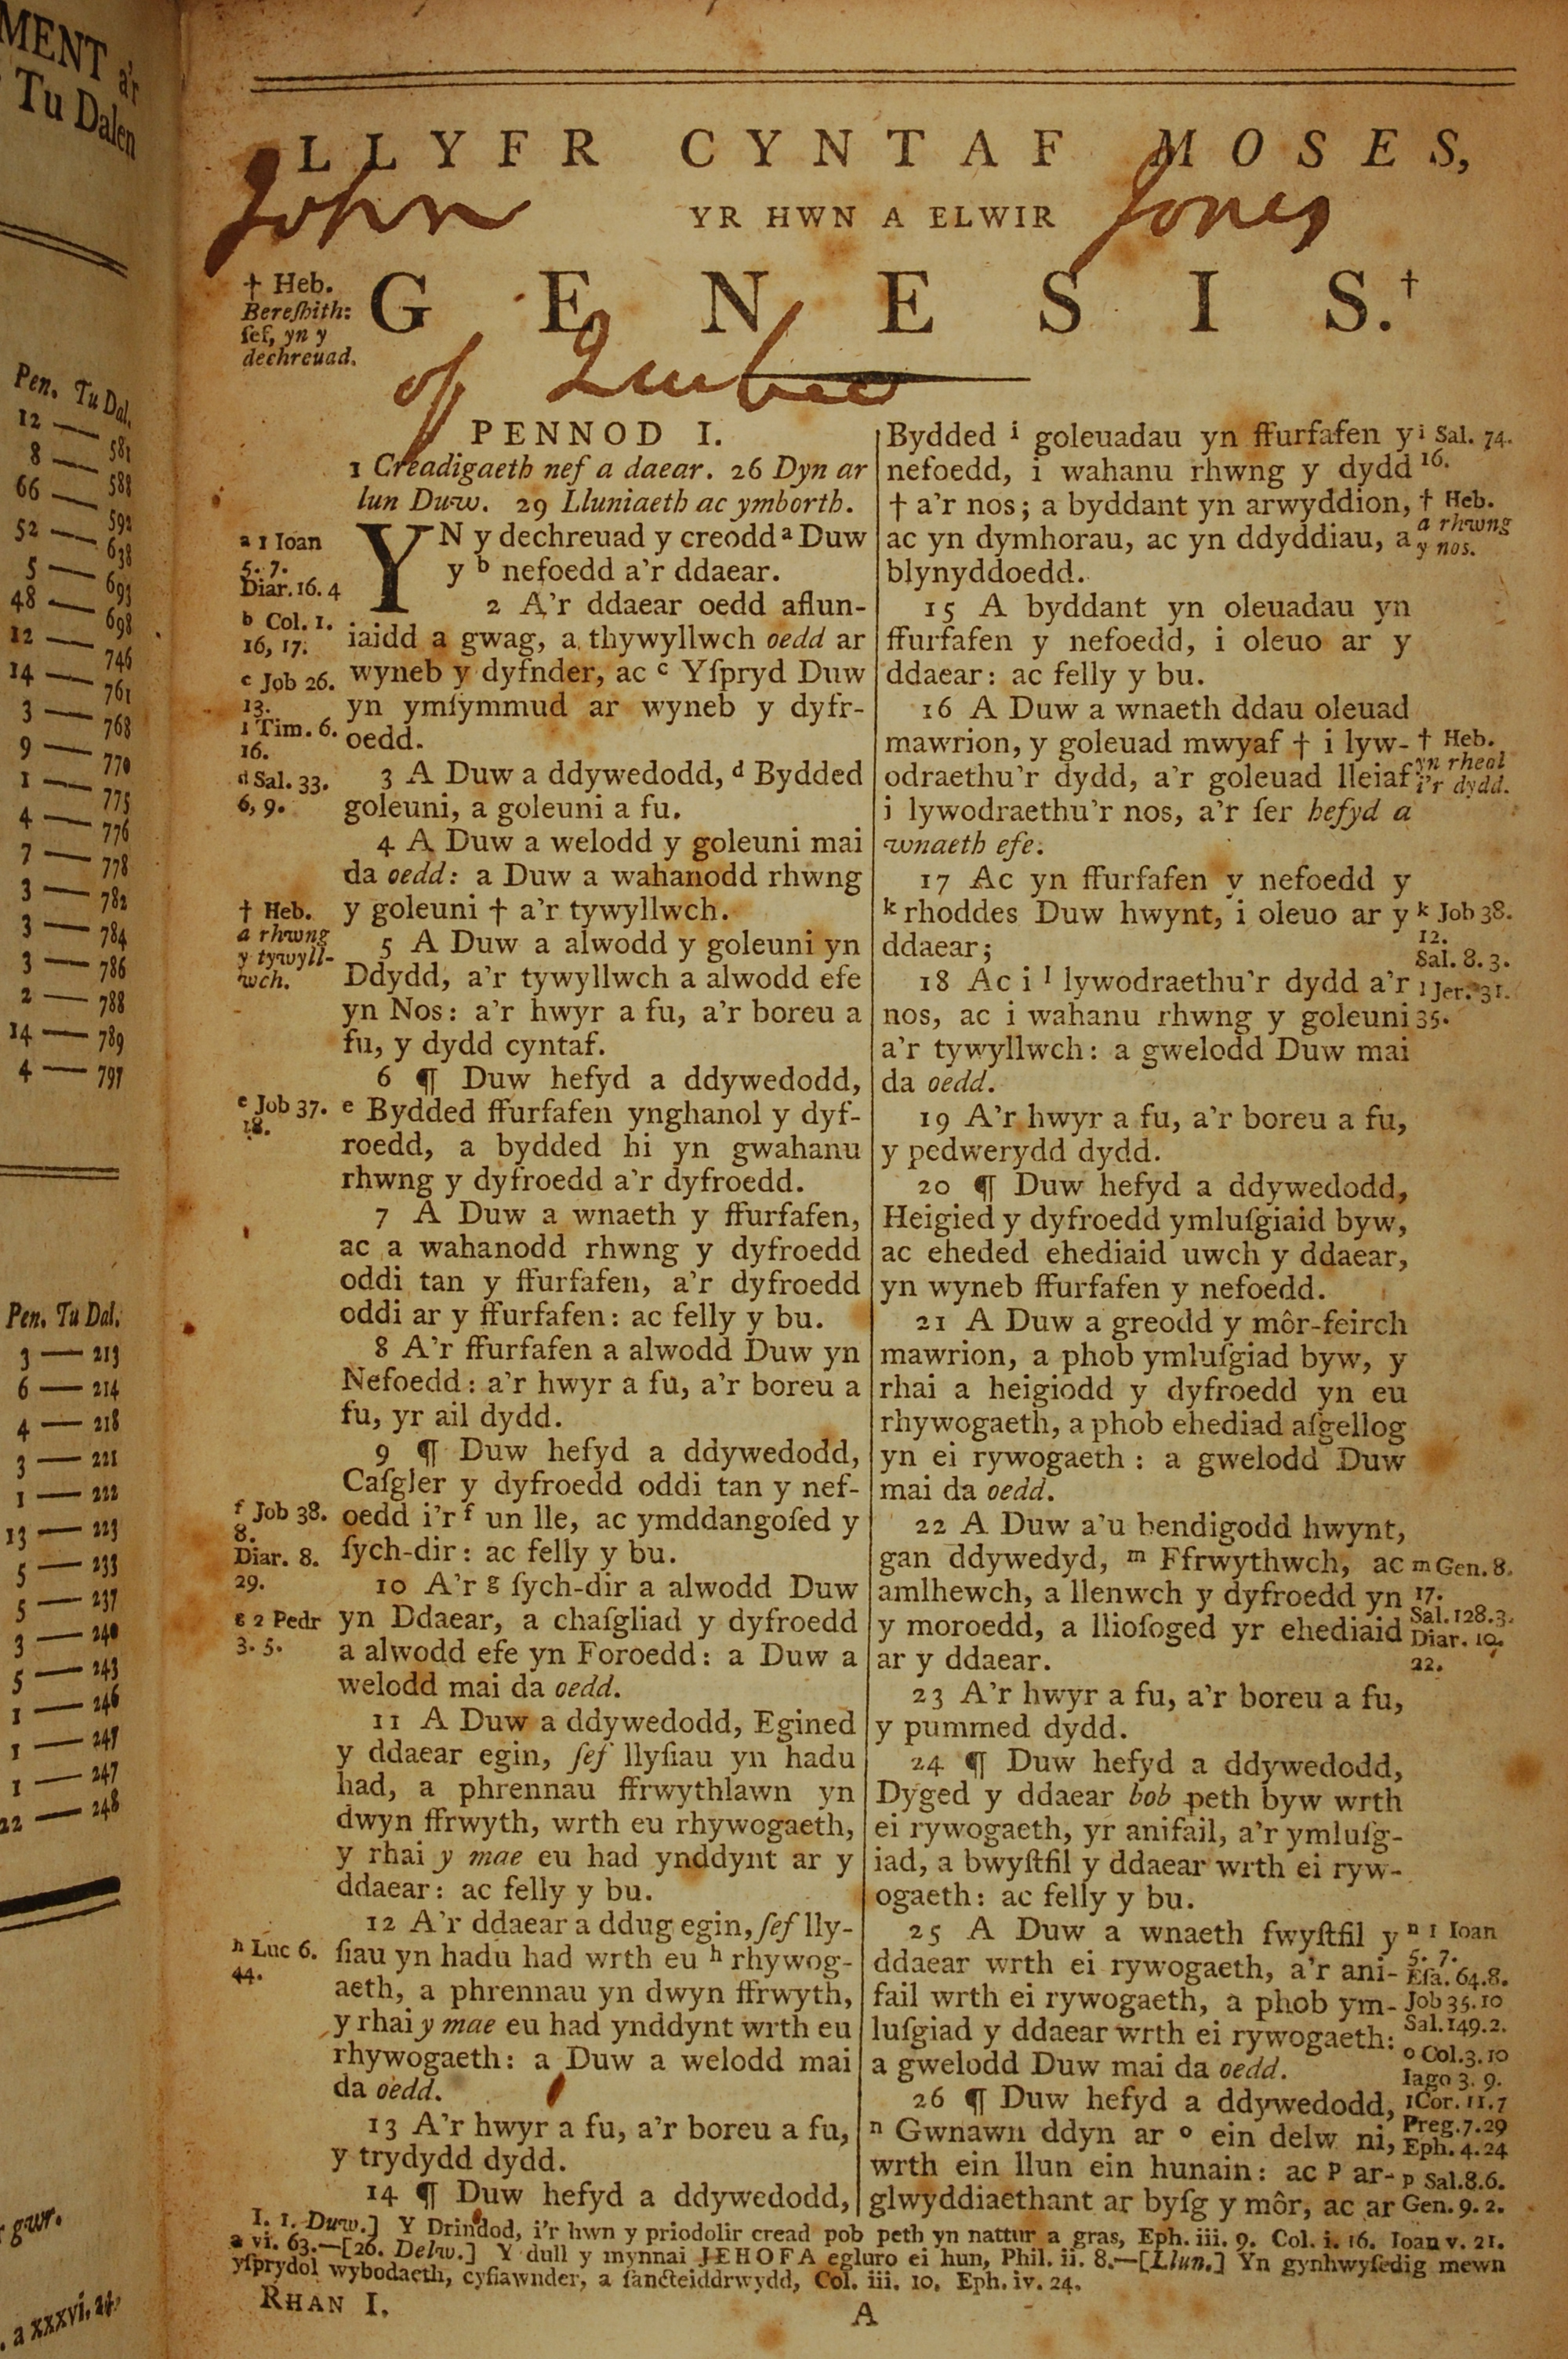 MENT a'r
Tu Dalen
Pen. Tu Dal.
12 — 581
8 — 588
66 — 592
52 — 638
5 — 693
48 — 698
12 — 746
14 — 761
3 — 768
9 — 770
1 — 775
4 — 776
7 — 778
3 — 782
3 — 784
3 — 786
2 — 788
14 — 789
4 — 797
Pen. Tu Dal.
3 — 213
6 — 214
4 — 218
3 — 221
1 — 222
13 — 223
5 — 233
5 — 237
3 — 240
5 — 243
1 — 246
1 — 247
1 — 247
22 — 248
gwr.
a xxxvi. 24.
LLYFR CYNTAF MOSES,
John Jones
YR HWN A ELWIR
GENESIS.†
of Quebec
† Heb.
Bereſhith:
ſef, yn y
dechreuad.
a 1 Ioan
5. 7.
Diar. 16. 4
b Col. 1.
16, 17.
c Job 26.
13.
1 Tim. 6.
16.
d Sal. 33.
6, 9.
† Heb.
a rhwng
y tywyll-
wch.
e Job 37.
18.
f Job 38.
8.
Diar. 8.
29.
g 2 Pedr
3. 5.
h Luc 6.
44.
PENNOD I.
1 Creadigaeth nef a daear. 26 Dyn ar
lun Duw. 29 Lluniaeth ac ymborth.
YN y dechreuad y creodd a Duw
y b nefoedd a'r ddaear.
2 A'r ddaear oedd aflun-
iaidd a gwag, a thywyllwch oedd ar
wyneb y dyfnder, ac c Yſpryd Duw
yn ymſymmud ar wyneb y dyfr-
oedd.
3 A Duw a ddywedodd, d Bydded
goleuni, a goleuni a fu.
4 A Duw a welodd y goleuni mai
da oedd: a Duw a wahanodd rhwng
y goleuni † a'r tywyllwch.
5 A Duw a alwodd y goleuni yn
Ddydd, a'r tywyllwch a alwodd efe
yn Nos: a'r hwyr a fu, a'r boreu a
fu, y dydd cyntaf.
6 ¶ Duw hefyd a ddywedodd,
e Bydded ffurfafen ynghanol y dyf-
roedd, a bydded hi yn gwahanu
rhwng y dyfroedd a'r dyfroedd.
7 A Duw a wnaeth y ffurfafen,
ac a wahanodd rhwng y dyfroedd
oddi tan y ffurfafen, a'r dyfroedd
oddi ar y ffurfafen: ac felly y bu.
8 A'r ffurfafen a alwodd Duw yn
Nefoedd: a'r hwyr a fu, a'r boreu a
fu, yr ail dydd.
9 ¶ Duw hefyd a ddywedodd,
Caſgler y dyfroedd oddi tan y nef-
oedd i'r f un lle, ac ymddangoſed y
ſych-dir: ac felly y bu.
10 A'r g ſych-dir a alwodd Duw
yn Ddaear, a chaſgliad y dyfroedd
a alwodd efe yn Foroedd: a Duw a
welodd mai da oedd.
11 A Duw a ddywedodd, Egined
y ddaear egin, ſef llyſiau yn hadu
had, a phrennau ffrwythlawn yn
dwyn ffrwyth, wrth eu rhywogaeth,
y rhai y mae eu had ynddynt ar y
ddaear: ac felly y bu.
12 A'r ddaear a ddug egin, ſef lly-
ſiau yn hadu had wrth eu h rhywog-
aeth, a phrennau yn dwyn ffrwyth,
y rhai y mae eu had ynddynt wrth eu
rhywogaeth: a Duw a welodd mai
da oedd.
13 A'r hwyr a fu, a'r boreu a fu,
y trydydd dydd.
14 ¶ Duw hefyd a ddywedodd,
Bydded i goleuadau yn ffurfafen y
nefoedd, i wahanu rhwng y dydd
† a'r nos; a byddant yn arwyddion,
ac yn dymhorau, ac yn ddyddiau, a
blynyddoedd.
15 A byddant yn oleuadau yn
ffurfafen y nefoedd, i oleuo ar y
ddaear: ac felly y bu.
16 A Duw a wnaeth ddau oleuad
mawrion, y goleuad mwyaf † i lyw-
odraethu'r dydd, a'r goleuad lleiaf
i lywodraethu'r nos, a'r ſer hefyd a
wnaeth efe.
17 Ac yn ffurfafen y nefoedd y
k rhoddes Duw hwynt, i oleuo ar y
ddaear;
18 Ac i l lywodraethu'r dydd a'r
nos, ac i wahanu rhwng y goleuni
a'r tywyllwch: a gwelodd Duw mai
da oedd.
19 A'r hwyr a fu, a'r boreu a fu,
y pedwerydd dydd.
20 ¶ Duw hefyd a ddywedodd,
Heigied y dyfroedd ymluſgiaid byw,
ac eheded ehediaid uwch y ddaear,
yn wyneb ffurfafen y nefoedd.
21 A Duw a greodd y môr-feirch
mawrion, a phob ymluſgiad byw, y
rhai a heigiodd y dyfroedd yn eu
rhywogaeth, a phob ehediad aſgellog
yn ei rywogaeth : a gwelodd Duw
mai da oedd.
22 A Duw a'u bendigodd hwynt,
gan ddywedyd, m Ffrwythwch, ac
amlhewch, a llenwch y dyfroedd yn
y moroedd, a llioſoged yr ehediaid
ar y ddaear.
23 A'r hwyr a fu, a'r boreu a fu,
y pummed dydd.
24 ¶ Duw hefyd a ddywedodd,
Dyged y ddaear bob peth byw wrth
ei rywogaeth, yr anifail, a'r ymluſg-
iad, a bwyſtfil y ddaear wrth ei ryw-
ogaeth: ac felly y bu.
25 A Duw a wnaeth fwyſtfil y
ddaear wrth ei rywogaeth, a'r ani-
fail wrth ei rywogaeth, a phob ym-
luſgiad y ddaear wrth ei rywogaeth:
a gwelodd Duw mai da oedd.
26 ¶ Duw hefyd a ddywedodd,
n Gwnawn ddyn ar o ein delw ni,
wrth ein llun ein hunain: ac p ar-
glwyddiaethant ar byſg y môr, ac ar
i Sal. 74.
16.
† Heb.
a rhwng
y nos.
† Heb.
yn rheol
i'r dydd.
k Job 38.
12.
Sal. 8. 3.
l Jer. 31.
35.
m Gen. 8.
17.
Sal. 128. 3.
Diar. 10.
22.
n 1 Ioan
5. 7.
Eſa. 64. 8.
Job 35. 10
Sal. 149. 2.
o Col. 3. 10
Iago 3. 9.
1 Cor. 11. 7
Preg. 7. 29
Eph. 4. 24
p Sal. 8. 6.
Gen. 9. 2.
I. 1. Duw.] Y Drindod, i'r hwn y priodolir cread pob peth yn nattur a gras, Eph. iii. 9. Col. i. 16. Ioan v. 21.
a vi. 63.—[26. Delw.] Y dull y mynnai JEHOFA egluro ei hun, Phil. ii. 8.—[Llun.] Yn gynhwyſedig mewn
yſprydol wybodaeth, cyfiawnder, a ſancteiddrwydd, Col. iii. 10. Eph. iv. 24.
RHAN I. A